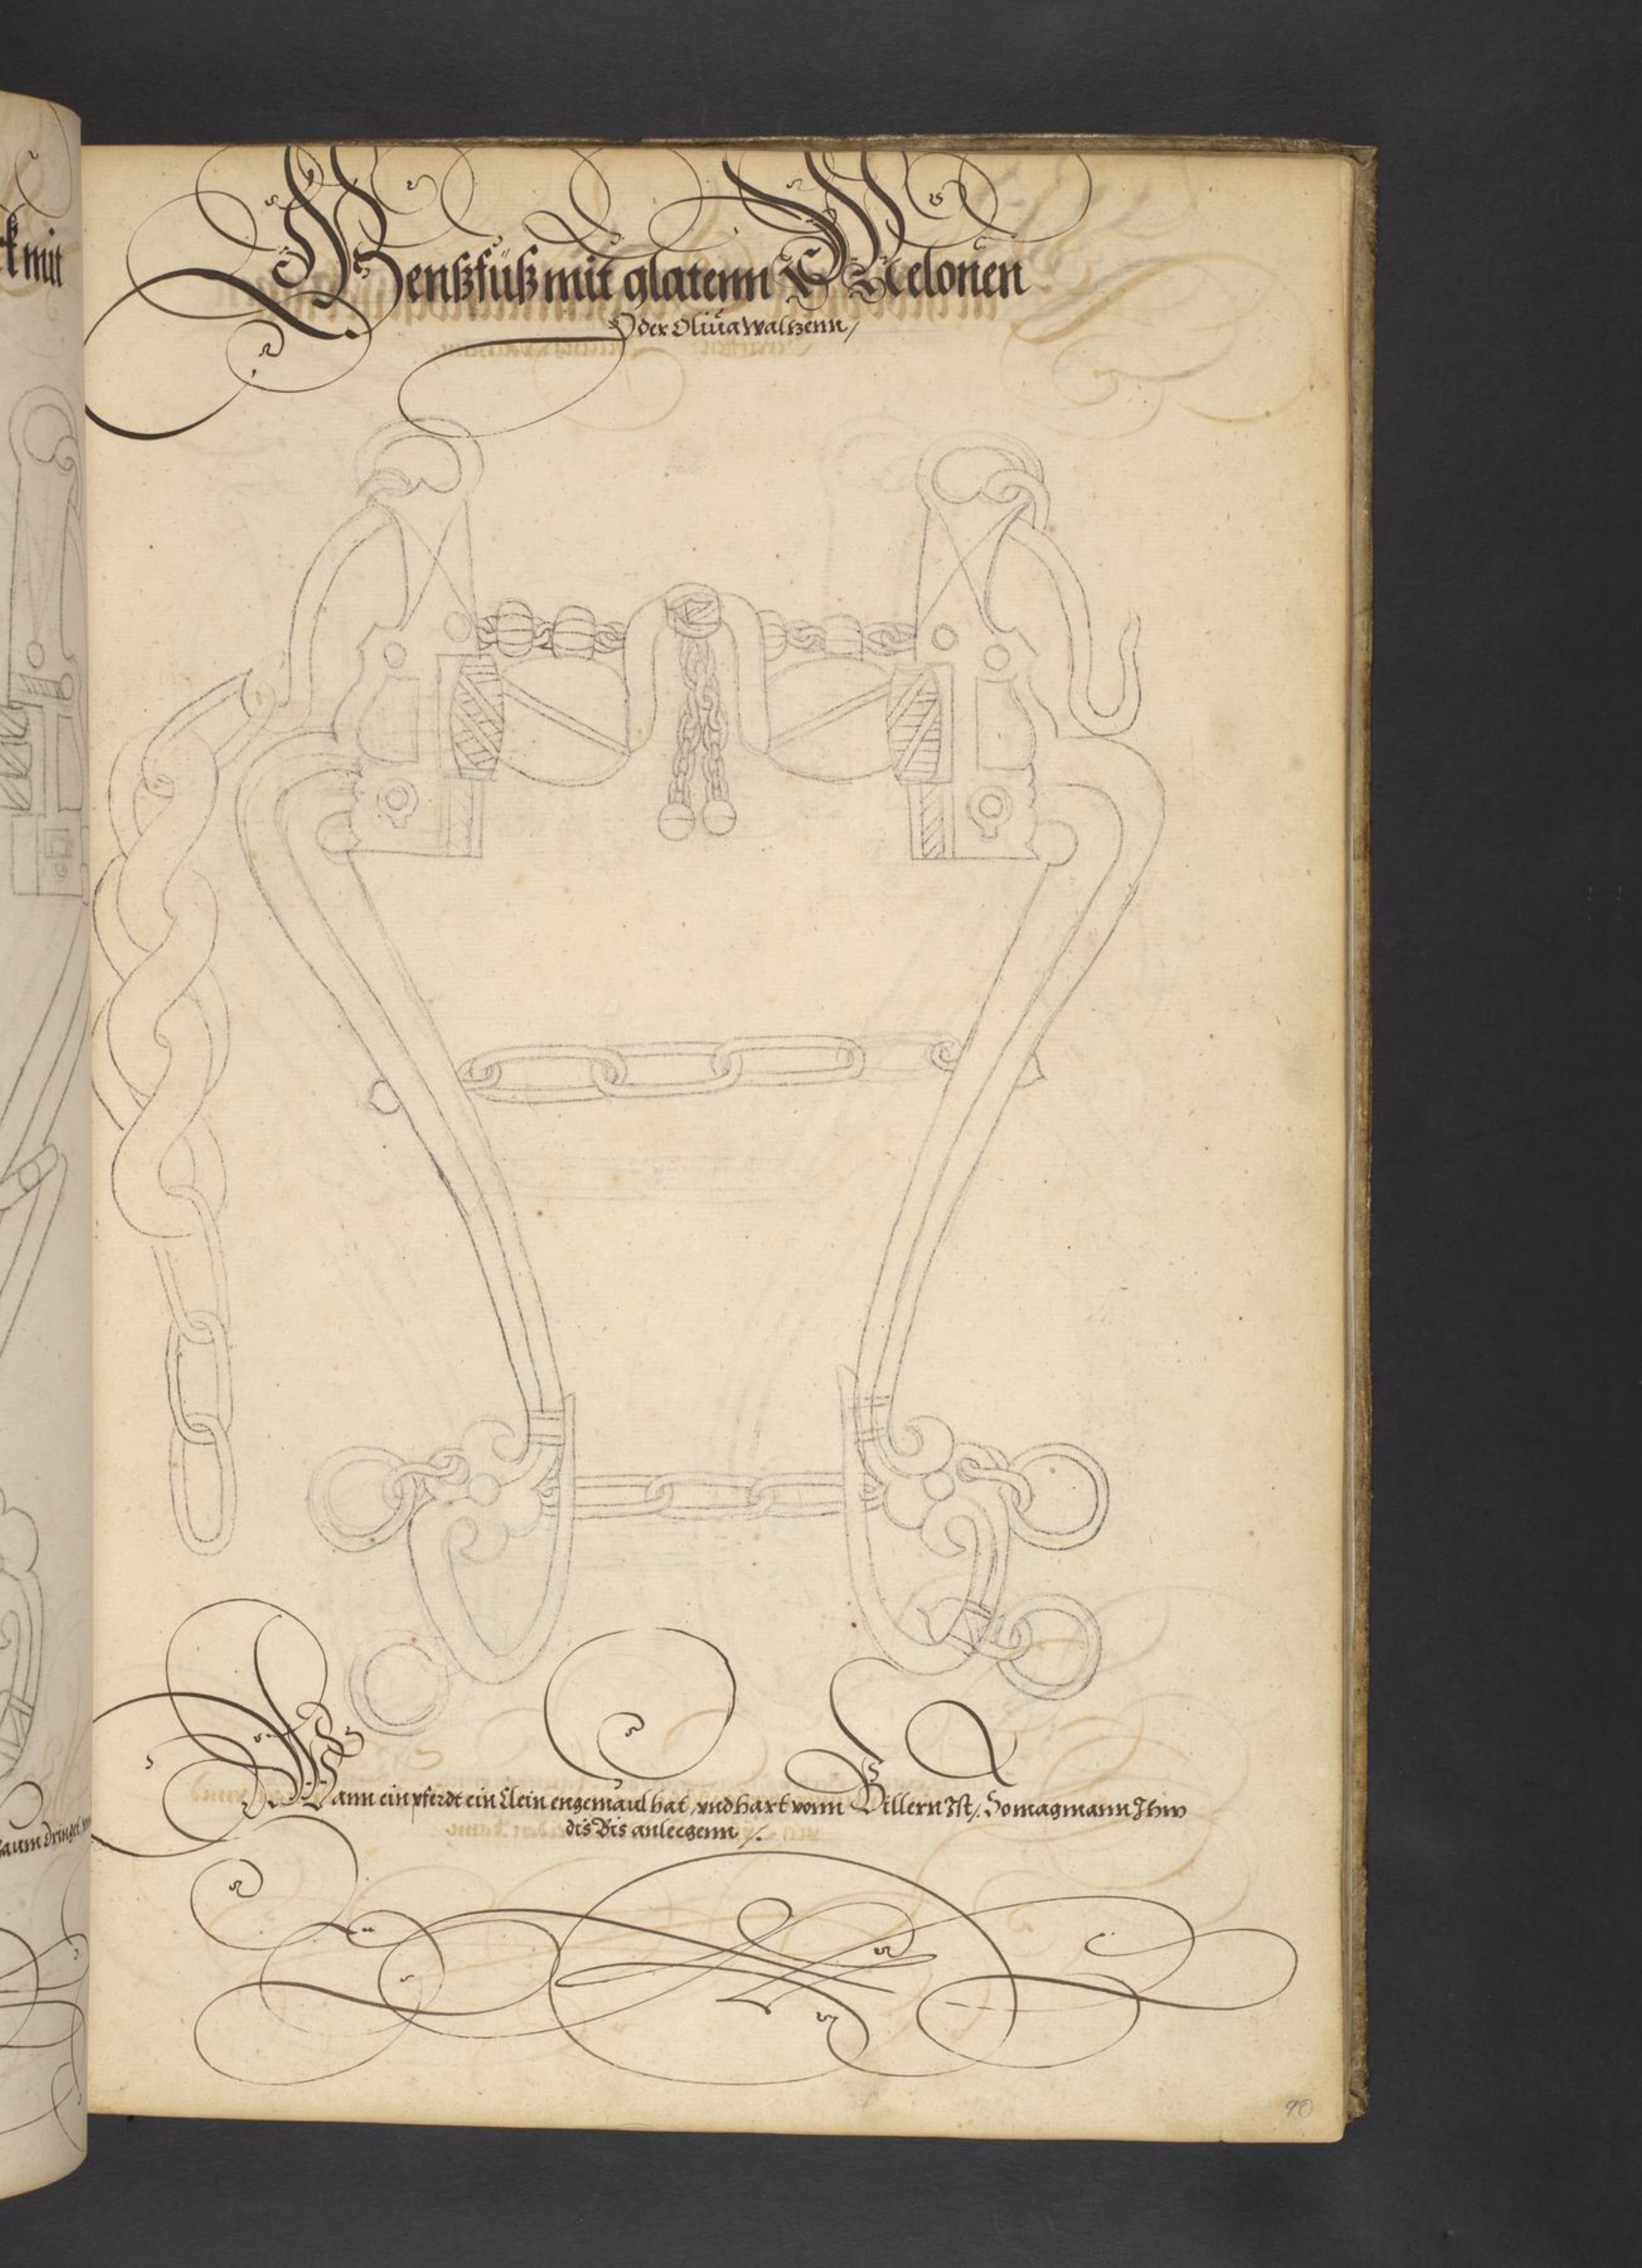 k mit
Genßfüß mit glatenn Melonen
Oder Oliua waltzenn /
Wann ein pferdt ein klein enge maul hat, vnd hart vonn Billern Ist /. So mag mann Ihm
dis Bis anlegenn /.
90